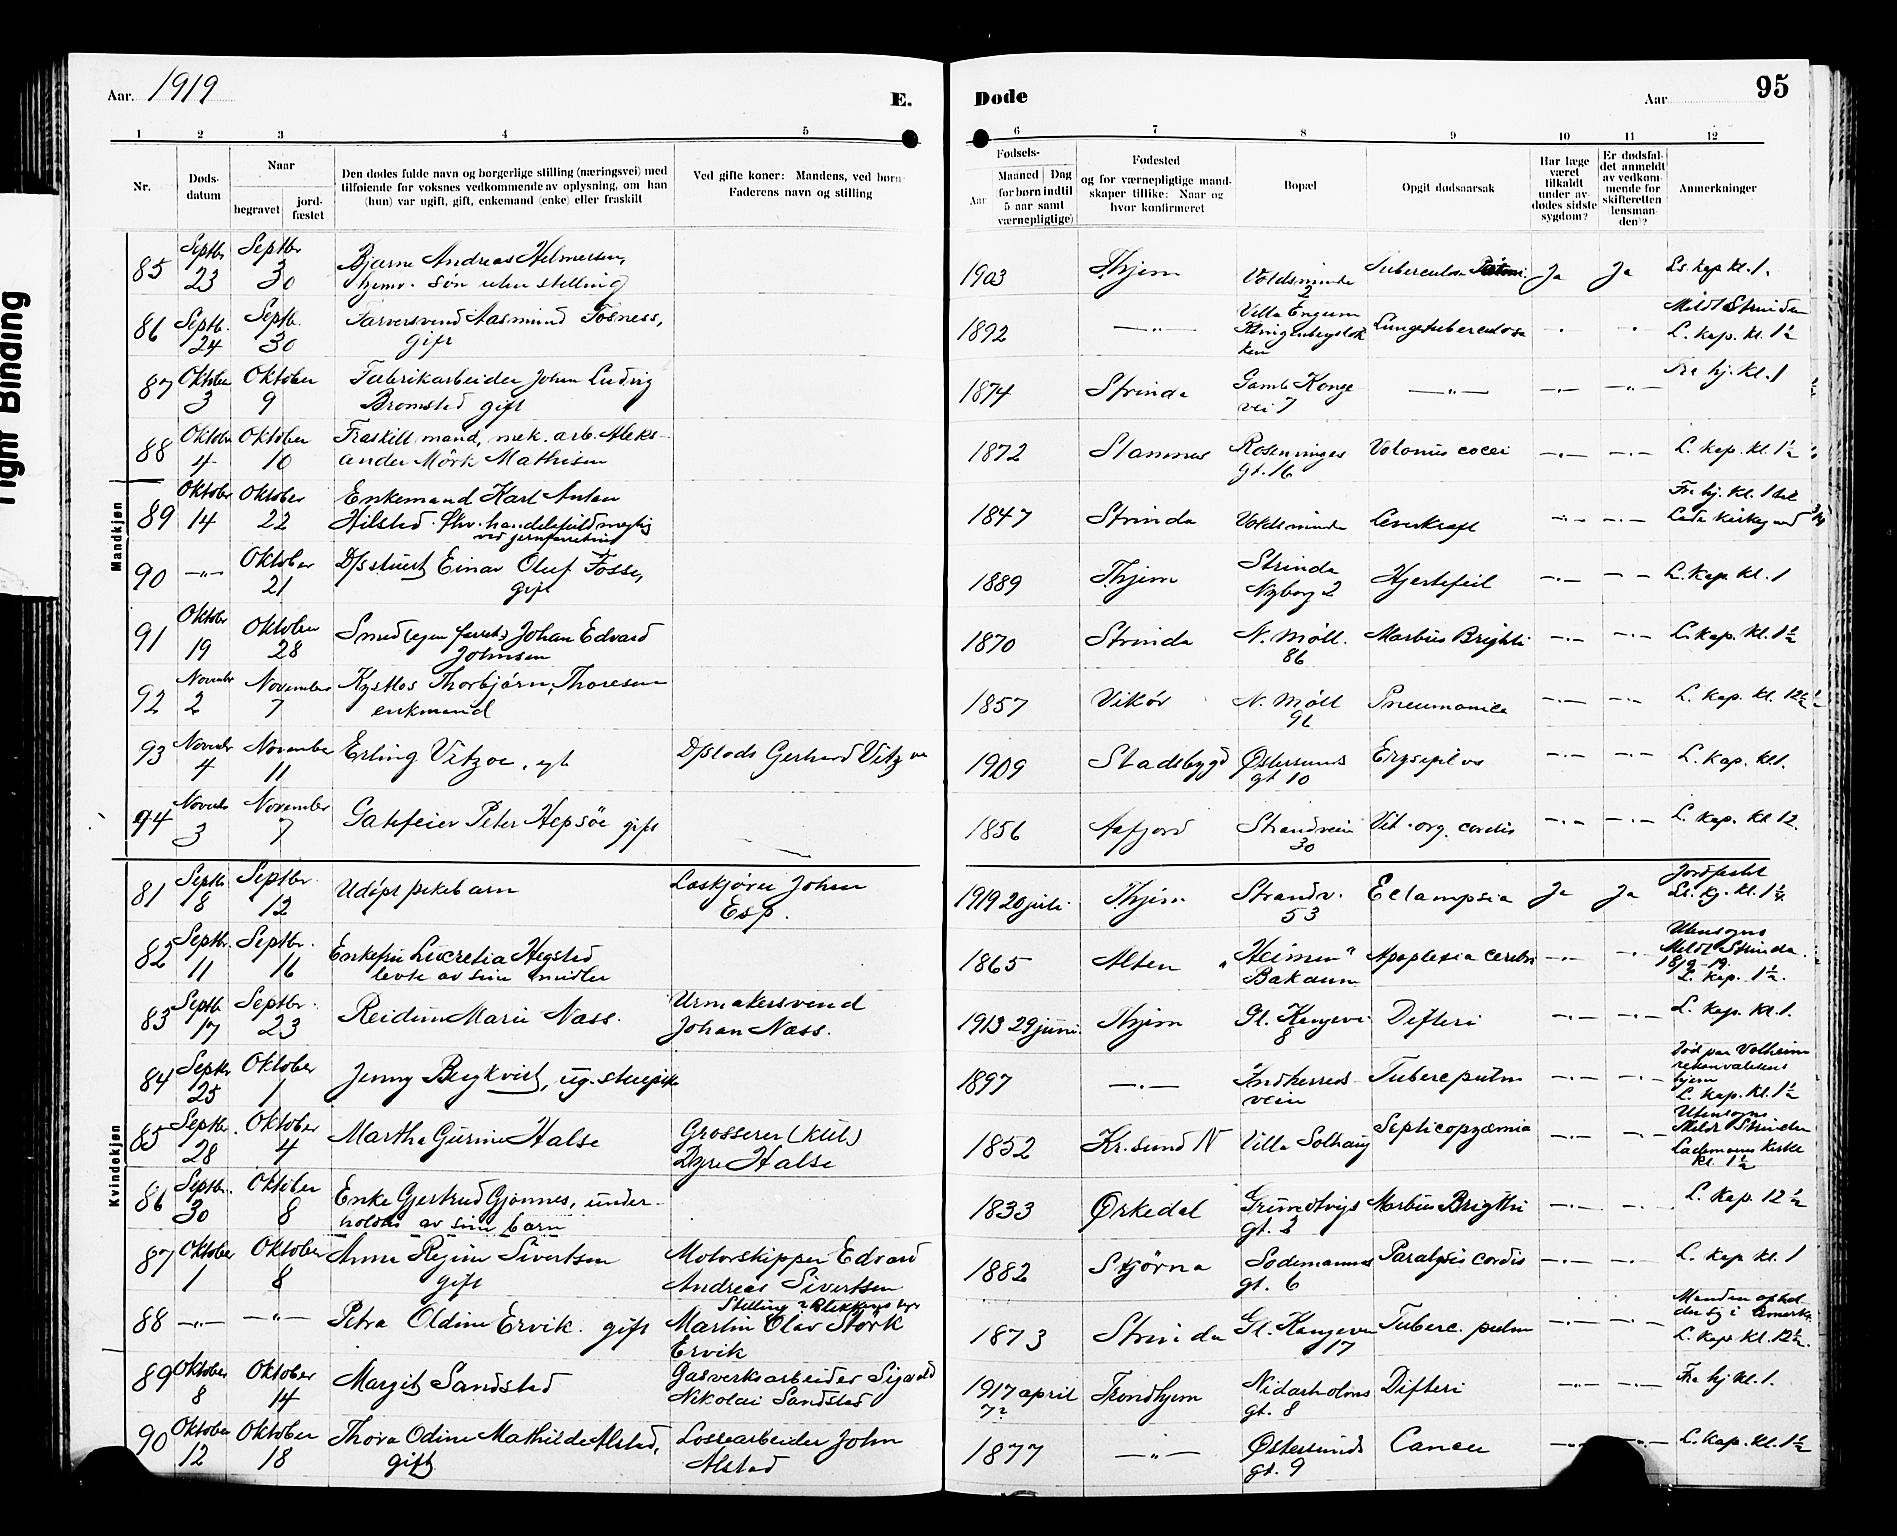 Tight Binding
Aar. 1919
E.
Døde
Aar
95
1 2 3 4 5 6 7 8 9 10 11 12
Nr.
Døds-
datum
Naar
begravet
jord-
fæstet
Den dødes fulde navn og borgerlige stilling (næringsvei) med
tilføiende for voksnes vedkommende av oplysning, om han
(hun) var ugift, gift, enkemand (enke) eller fraskilt
Ved gifte koner: Mandens, ved børn
Faderens navn og stilling
Fødsels-
Aar
Maaned Dag
for børn indtil
5 aar samt
værnepligtige)
Fødested
og for værnepligtige mand-
skaper tillike: Naar og
hvor konfirmeret
Bopæl
Opgit dødsaarsak
Har læge
været
tilkaldt
under av-
dødes sidste
sygdom?
Er dødsfal-
det anmeldt
av vedkom-
mende før
skifteretten
lensman-
den)?
Anmerkninger
Mandkjøn
85 Septbr. 23 Septbr 30 Bjarne Andreas Helmersen,
hjemv. søn uten stilling
1903 Thjem Voldsminde 2 Tuberculos Ja Ja L. kap kl. 1.
86 Septb. 24 Septb. 30 Farversvend Aasmund Fosness,
gift
1892 —„— Villa Engum Lungetuberculose Meldt Strinden
L. kap. kl. 1½
87 Oktober 3 Oktober 9 Fabrikarbeider Johan Ludvig
Bromstad gift
1874 Strinda Gamle Konge
vei 7 —„— Fra hj. kl. 1
88 Oktober 4 Oktober 10 Fraskilt mand, mek. arb. Aleks-
ander Mörk Mathisen
1872 Stamnes Rosenninges
gt. 16 L. kap. kl. 1½
89 Oktober 14 Oktober 22 Enkemand Karl Anton
Hilstad. fhv. handelsfuldmegtig
ved jernforretning
1847 Strinda Voldsminde Leverkræft Fra hj. kl. 1 til
Lade kirkegaard
90 —„— Oktober 21 D/sstuert Einar Oluf Fosse,
gift
1889 Thjem Strinda
Nyborg 2 Hjertefeil L. kap. kl. 1
91 Oktober 19 Oktober 28 Smed (egen forretn.) Johan Edvard
Johnsen
1870 Strinda N. Möll.
86 Morbus Brighti L. kap. kl. 1½
92 Novembr 2 November 7 Kystlos Thorbjörn Thoresen
enkemand
1857 Vikör N. Möll
96 Pneumonica L. kap. kl. 12½
93 Novembr 4 November 11 Erling Vitzoe, egte D/slods Gerhard Vitzoe
1909 Stadsbygd Østersunds
gt 10 Erysepilas L. kap. kl. 1.
94 Novembr 3 November 7 Gatefeier Peter Hepsöe gift
1856 Aafjord Strandveien
30 Vit. org. cordis L. kap. kl 12.
Kvindekjøn
81 Septb. 8 Septbr. 12 Udöpt pikebarn Loskjörer Johan
Esp.
1919 20 juli Thjem Strandv.
53 Eclampsia Ja Ja Jordfestet
L. kj. kl. 1¼
82 Septbr. 11 Septbr. 16 Enkefru Lucretia Hegstad
levte av sine midler
1865 Alten „Heimen“
Bakaune Apoplexia cerebri Utensogns
Meldt Strinda
18/9-19.
L. kap. 1½.
83 Septb. 17 Septbr. 23 Reidun Marie Næss. Urmakersvend
Johan Næss.
1913 29 juni. Thjem Gl. Kongevei
8 Difteri L. kap. kl. 1.
84 Septbr 25 Oktober 1 Jenny Bergkvist, ug. stuepike
1897 —„— Indherreds
veien Tuberc pulm Död paa Volheim
rekonvalesens
hjem
L. kap. kl. 1½
85 Septbr. 28 Oktober 4 Martha Gurine Halse Grosserer
Dyre Halse
1852 Kr.sund N Villa Solhaug Septicopyæmia Utensogns
Meldt Strinden
Lademoens kirke
kl. 1½
86 Septbr. 30 Oktober 8 Enke Gjertrud Gjönnes, under-
holdes av sine barn
1833 Ørkedal Grundtvigs
gt. 2 Morbus Brigthi L. kap. 12½
87 Oktober 1 Oktober 8 Anna Regine Sivertsen
gift Motorskipper Edvard
Andreas Sivertsen
1882 Skjörna Sodemanns
gt. 6 Paralysis cordis L. kap kl. 1
88 —„— —„— Petra Oldine Ervik. gift Stilling: Blikkens
Martin Olav Störk
Ervik
1873 Strinda Gl. Kongevei
17 Tuberc. pulm Manden ophol-
der sig i Amerika
L. kap. kl. 12½.
89 Oktober 8 Oktober 14 Margit Sandstad Gasverksarbeider Sigvald
Nikolai Sandstad
1917 april
7? Trondhjem Nidarholms
gt. 8 Difteri Fra hj kl. 1.
90 Oktober 12 Oktober 18 Thora Odine Mathilde Alstad,
gift Lossearbeider John
Alstad
1877 —„— Østersunds
gt. 9 Cancer L. kap. kl. 1½